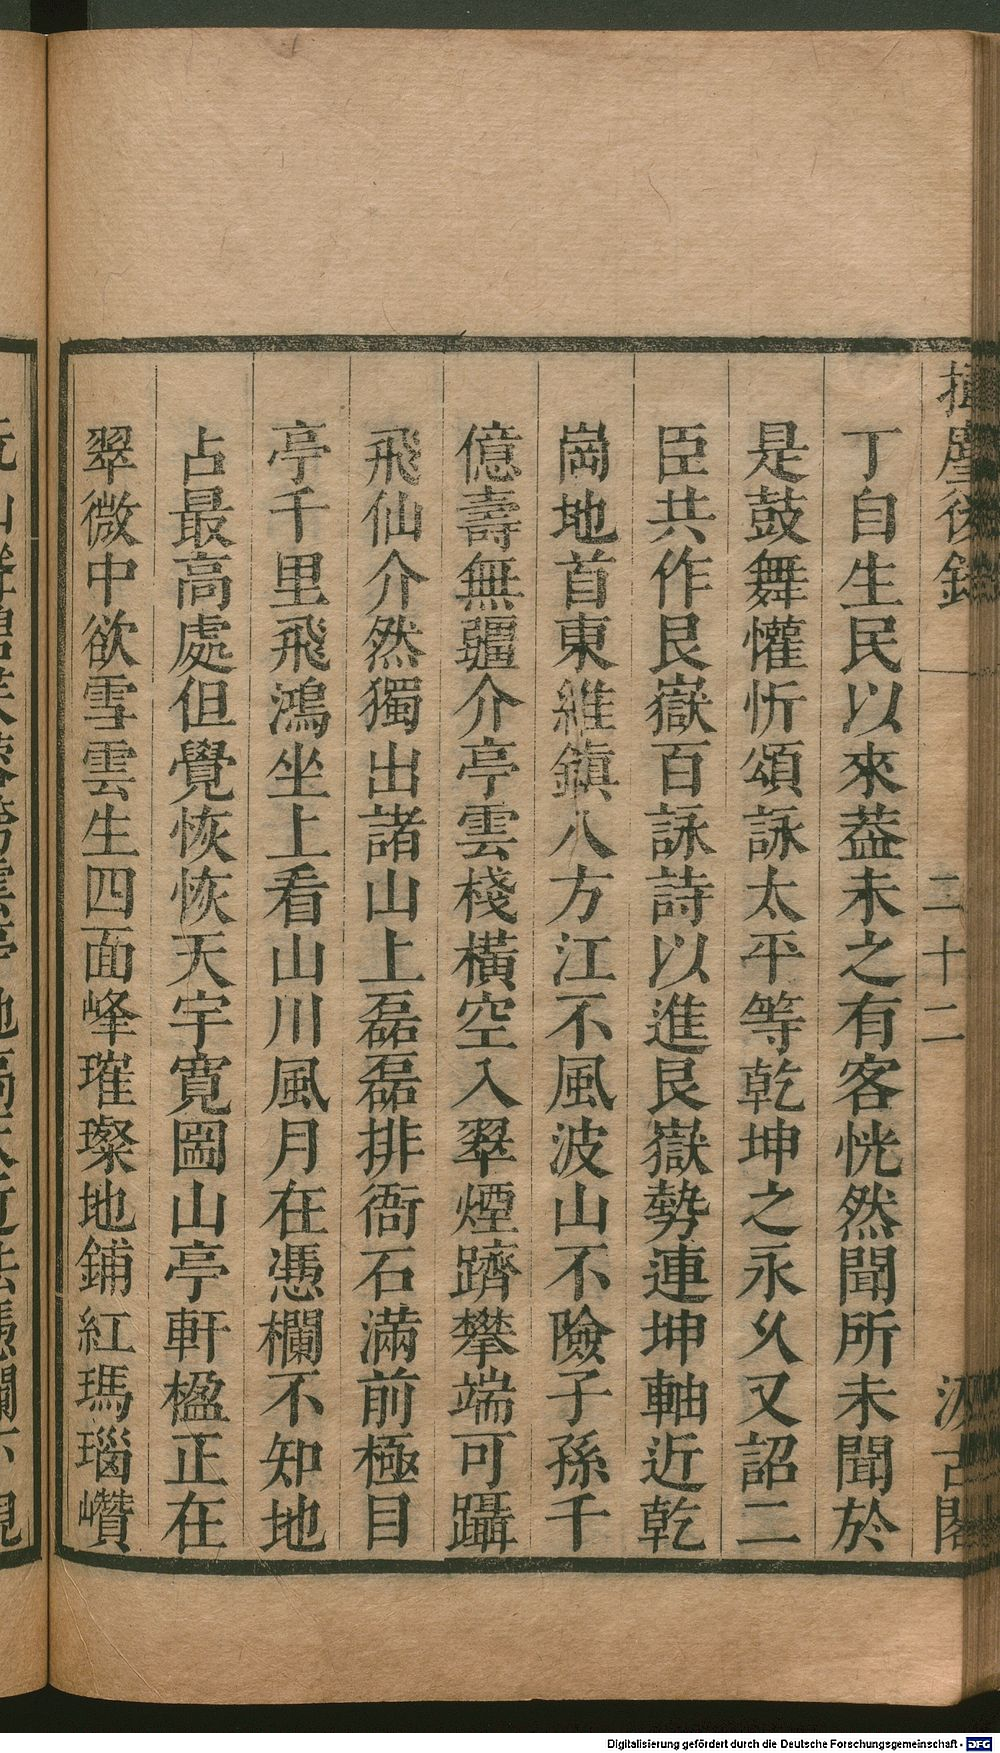 揮麈後錄
二十二
汲古閣
丁自生民以來葢未之有客恍然聞所未聞於
是鼓舞懽忻頌詠太平等乾坤之永久又詔二
臣共作艮嶽百詠詩以進艮嶽勢連坤軸近乾
崗地首東維鎮八方江不風波山不險子孫千
億壽無疆介亭雲棧橫空入翠煙躋攀端可躡
飛仙介然獨出諸山上磊磊排衙石滿前極目
亭千里飛鴻坐上看山川風月在憑欄不知地
占最高處但覺恢恢天宇寛圌山亭軒楹正在
翠微中欲雪雲生四面峰璀璨地鋪紅瑪瑙巑
Digitalisierung gefördert durch die Deutsche Forschungsgemeinschaft - DFG